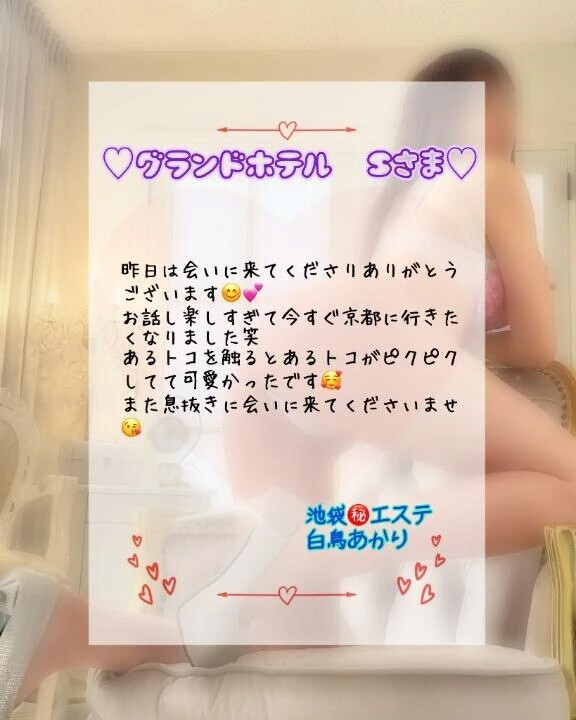 ♡グランドホテル Sさま♡
昨日は会いに来てくださりありがとう
ございます😊💕
お話し楽しすぎて今すぐ京都に行きた
くなりました笑
あるトコを触るとあるトコがピクピク
してて可愛かったです🥰
また息抜きに会いに来てくださいませ
😘
池袋㊙️エステ
白鳥あかり